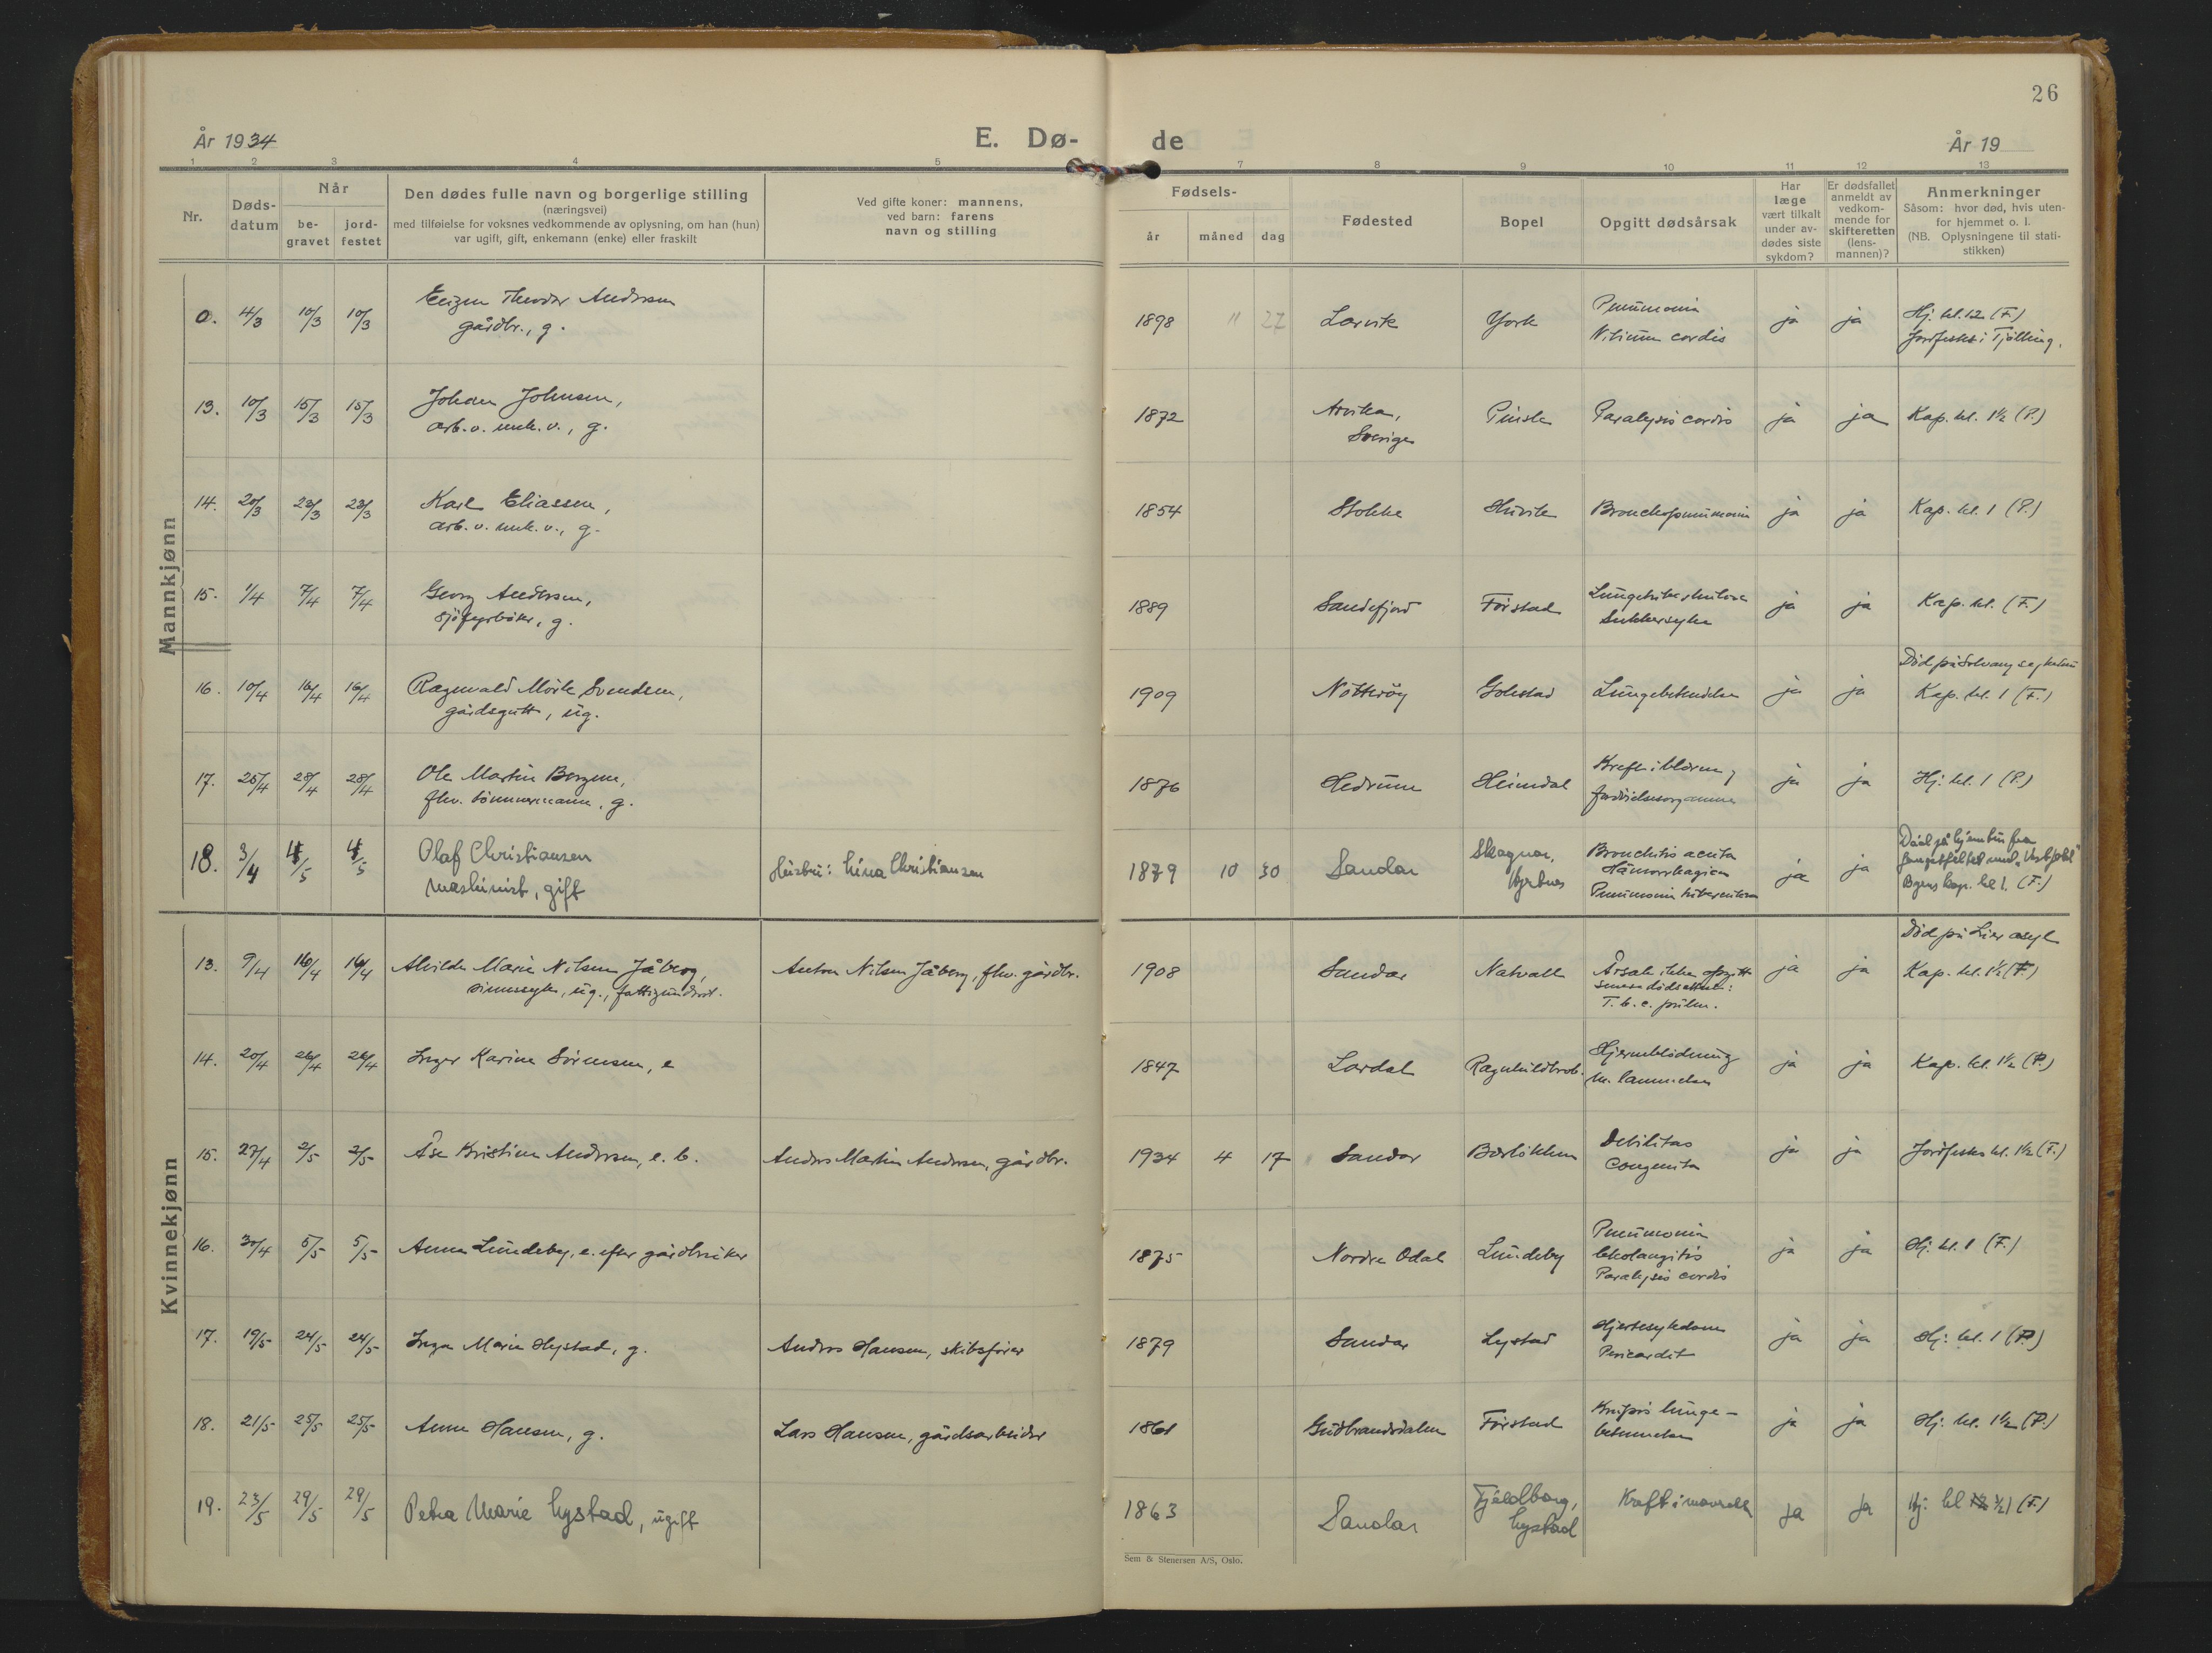 26
År 1934
E. Dø-
de
År 19
1 2 3 4 5 7 8 9 10 11 12 13
Nr.
Døds-
datum
Når
be-
gravet
jord-
festet
Den dødes fulle navn og borgerlige stilling
(næringsvei)
med tilføielse for voksnes vedkommende av oplysning, om han (hun)
var ugift, gift, enkemann (enke) eller fraskilt
Ved gifte koner: mannens,
ved barn: farens
navn og stilling
Fødsels-
år
måned
dag
Fødested
Bopel
Opgitt dødsårsak
Har
læge
vært tilkalt
under av-
dødes siste
sykdom?
Er dødsfallet
anmeldt av
vedkom-
mende for
skifteretten
(lens-
mannen)?
Anmerkninger
Såsom: hvor død, hvis uten-
for hjemmet o. l.
(NB. Oplysningene til stati-
stikken)
Mannkjønn
0. 4/3 10/3 10/3 Eugen Theodor Andersen
gårdbr., g.
1898 11 22 Larvik York Pneumonia
Vitium cordis
ja ja Hj. kl. 12 (F.)
Jordfestet i Tjølling.
13. 10/3 15/3 15/3 Johan Johnsen,
arb. v. unk. v., g.
1872 Arvika,
Sverige
Pindsle Paralysis cordis ja ja Kap. kl. 1½ (P.)
14. 20/3 23/3 23/3 Karl Eliassen,
arb. v. unk. v., g.
1854 Stokke Huvik Bronchopneumonia ja ja Kap. kl. 1 (P.)
15. 1/4 7/4 7/4 Georg Andersen,
sjöfyrböter, g.
1889 Sandefjord Förstad Lungetuberkulose
Sukkersyke
ja ja Kap. kl. (F.)
16. 10/4 16/4 16/4 Ragnvald Mörk Svendsen,
gårdsgutt, ug.
1909 Nötteröy Gokstad Lungebetendelse ja ja
Död på Solvang sykehus
Kap. kl. 1 (F.)
17. 25/4 28/4 28/4 Ole Martin Bergene,
fhv. tömmermann, g.
1876 Hedrum Heimdal Kreft i blæren og
ja ja Hj. kl. 1 (P.)
18. 3/4 4/5 4/5 Olaf Christiansen
maskinist, gift
Heistru: Lina Christiansen
1879 10 30 Sandar Skagnar,
Hjertnes
Bronchitis acuta
Hämorrhagica
Pneumonia tuberculosa
ja ja Död på hjemtur fra
fangstfeltet med „Vestfold"
Byens kap. kl 1. (F.)
Kvinnekjønn
13. 9/4 16/4 16/4 Alvilde Marie Nilsen Jåberg,
sinnssyk, ug., fattigunderst.
Anton Nilsen Jåberg, fhv. gårdbr.
1908 Sandar Natvall Årsak ikke opgitt
senere dödsattest:
T. b. c. pulm.
ja ja Död på Lier asyl
Kap. kl. 1½ (F.)
14. 20/4 26/4 26/4 Inger Karine Sörensen, e
1847 Lardal Ragnhildbrot. Hjerneblödning
m. lammelser
ja ja Kap. kl. 1½ (P.)
15. 27/4 2/5 2/5 Åse Kristine Andersen, e. b. Anders Martin Andersen, gårdbr.
1934 4 17 Sandar Barlökken Debilitas
congenita
ja ja Jordfestes kl. 1½ (F.)
16. 30/4 5/5 5/5 Anna Lundeby, e. efter gårdbruker
1875 Nordre Odal Lundeby Pneumonia
kholangitis
Paralysis cordis
ja ja Hj. kl. 1 (F.)
17. 19/5 24/5 24/5 Inga Marie Hystad, g. Anders Hansen, skibsförer
1879 Sandar Hystad Hjertesykdom
Pericardit
ja ja Hj. kl. 1 (P.)
18. 21/5 25/5 25/5 Anna Hansen, g. Lars Hansen, gårdsarbeider
1861 Gudbrandsdalen Förstad Krupøs lunge-
betennelse
ja ja Hj. kl. 1½ (P.)
19. 23/5 29/5 29/5 Petra Marie Hystad, ugift
1863 Sandar Fjeldborg,
Hystad
Kreft i mavesekk ja ja Hj. kl ½1 (F.)
Sem & Stenersen A/S, Oslo.